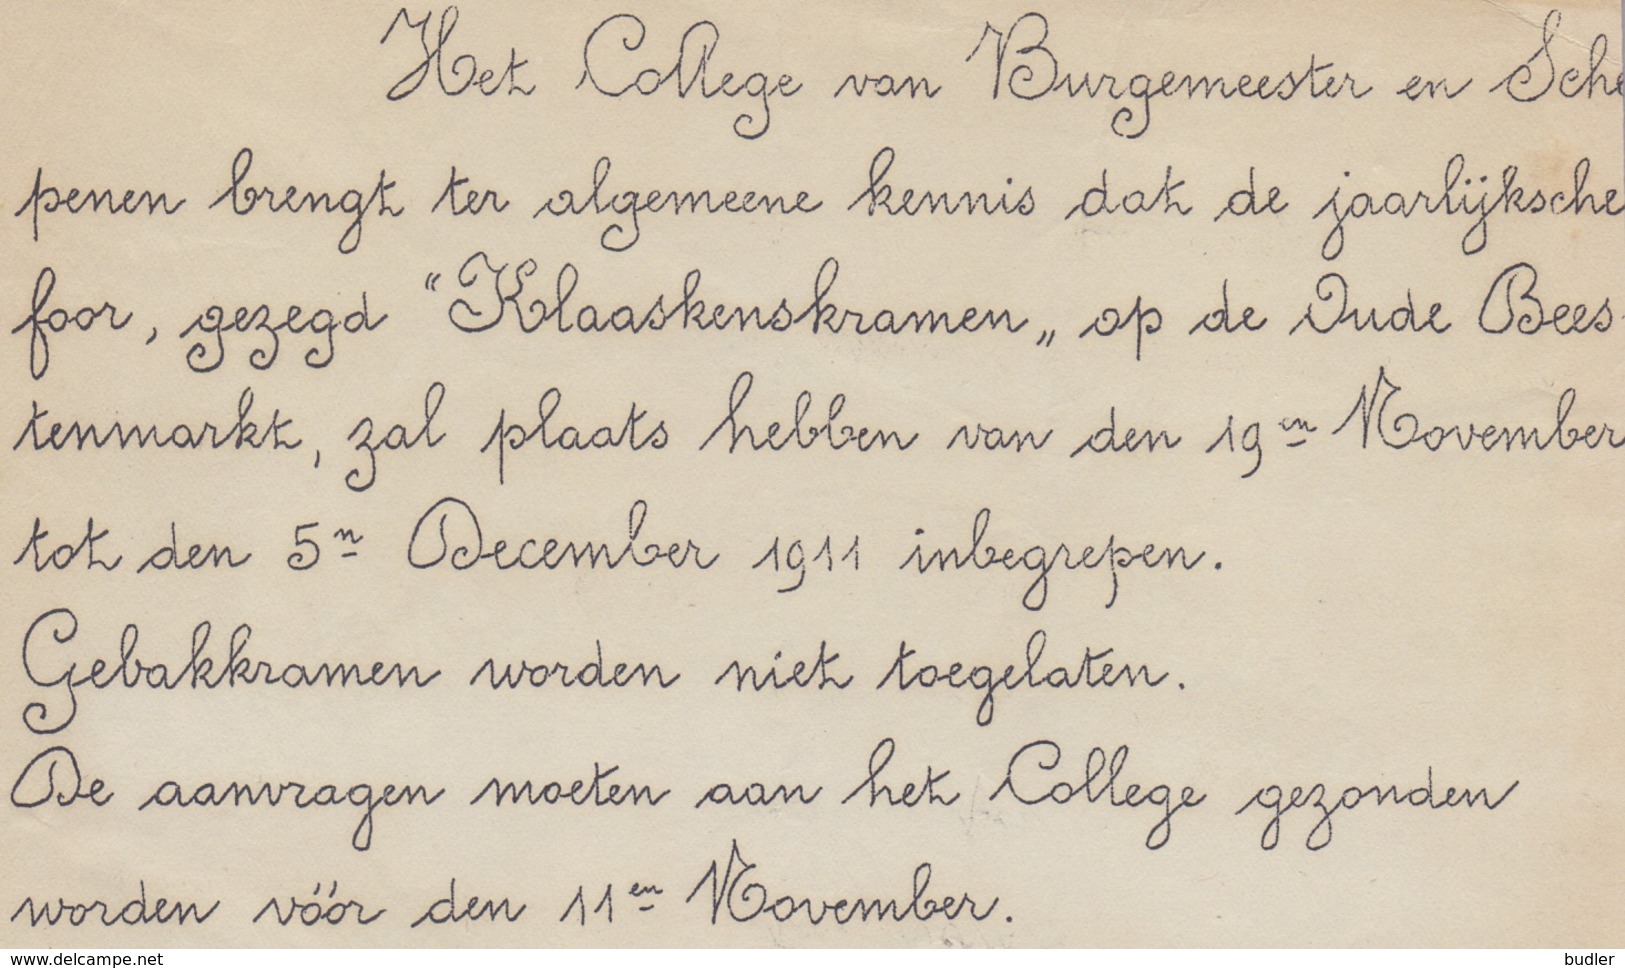 Het College van Burgemeester en Sche
penen brengt ter algemeene kennis dat de jaarlijksche
foor, gezegd “Klaaskenskramen„ op de Oude Bees-
tenmarkt, zal plaats hebben van den 19en November
tot den 5n December 1911 inbegrepen.
Gebakkramen worden niet toegelaten.
De aanvragen moeten aan het College gezonden
worden vóór den 11en November.
www.delcampe.net budler